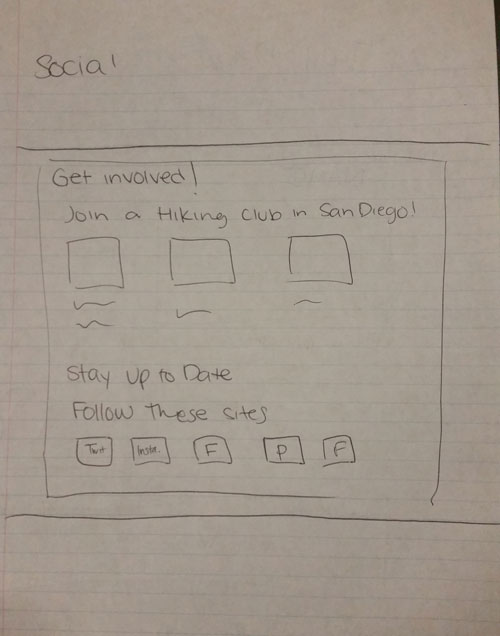 Social
Get involved!
Join a Hiking Club in San Diego!
Stay up to Date
Follow These sites
Twit Insta. F P F